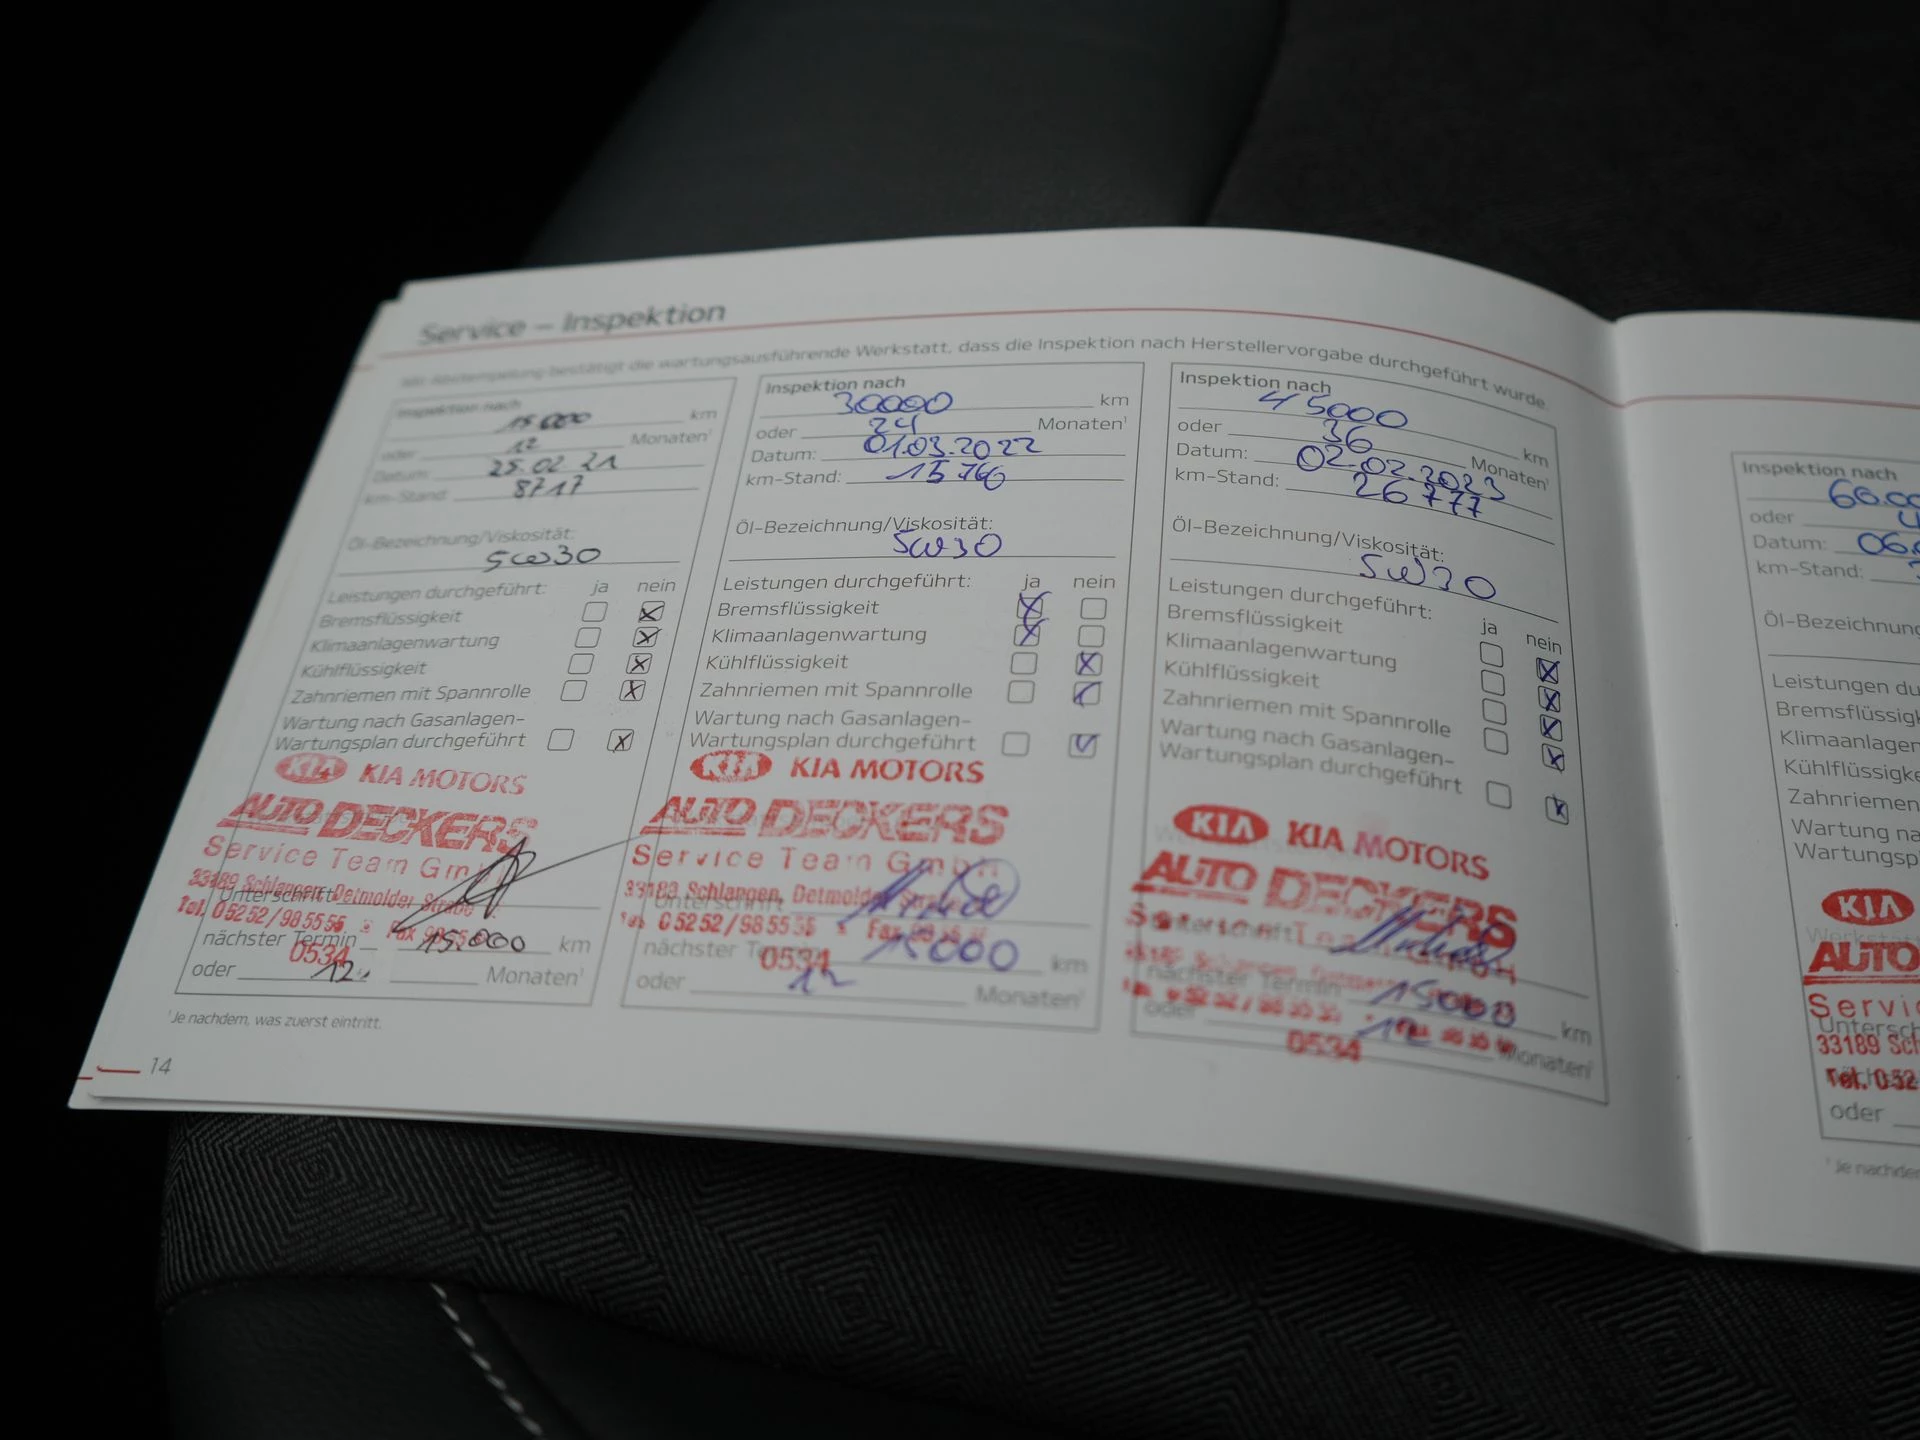 Service – Inspektion
Mit Abstempelung bestätigt die wartungsausführende Werkstatt, dass die Inspektion nach Herstellervorgabe durchgeführt wurde.
Inspektion nach
15000 km
oder 12 Monaten¹
Datum: 25.02 21
km-Stand: 8717
Öl-Bezeichnung/Viskosität:
5W30
Leistungen durchgeführt: ja nein
Bremsflüssigkeit
Klimaanlagenwartung
Kühlflüssigkeit
Zahnriemen mit Spannrolle
Wartung nach Gasanlagen-
Wartungsplan durchgeführt
KIA KIA MOTORS
AUTO DECKERS
Service Team Gm
33189 Schlangen, Detmolder Straße
Unterschrift
Tel. 05252/985555 * Fax
nächster Termin 15.000 km
0534
oder 12 Monaten¹
¹Je nachdem, was zuerst eintritt.
14
Inspektion nach
30000 km
oder 24 Monaten¹
Datum: 01.03.2022
km-Stand: 15766
Öl-Bezeichnung/Viskosität:
5W30
Leistungen durchgeführt: ja nein
Bremsflüssigkeit
Klimaanlagenwartung
Kühlflüssigkeit
Zahnriemen mit Spannrolle
Wartung nach Gasanlagen-
Wartungsplan durchgeführt
KIA KIA MOTORS
AUTO DECKERS
Service Team GmbH
33189 Schlangen, Detmolder Straße
Unterschrift
Tel. 05252/985555 * Fax
nächster Termin 15000 km
0534
oder 12 Monaten¹
Inspektion nach
45000 km
oder 36 Monaten¹
Datum: 02.02.2023
km-Stand: 26777
Öl-Bezeichnung/Viskosität:
5W30
Leistungen durchgeführt: ja nein
Bremsflüssigkeit
Klimaanlagenwartung
Kühlflüssigkeit
Zahnriemen mit Spannrolle
Wartung nach Gasanlagen-
Wartungsplan durchgeführt
KIA KIA MOTORS
AUTO DECKERS
Unterschrift
nächster Termin 15000 km
oder 12 Monaten¹
0534
Inspektion nach
60.00
oder
Datum: 06.
km-Stand:
Öl-Bezeichnung
Leistungen du
Bremsflüssigk
Klimaanlagen
Kühlflüssigke
Zahnriemen
Wartung na
Wartungsp
KIA
AUTO
Servic
Untersch
33189 Sch
Tel. 052
oder
¹ Je nachde